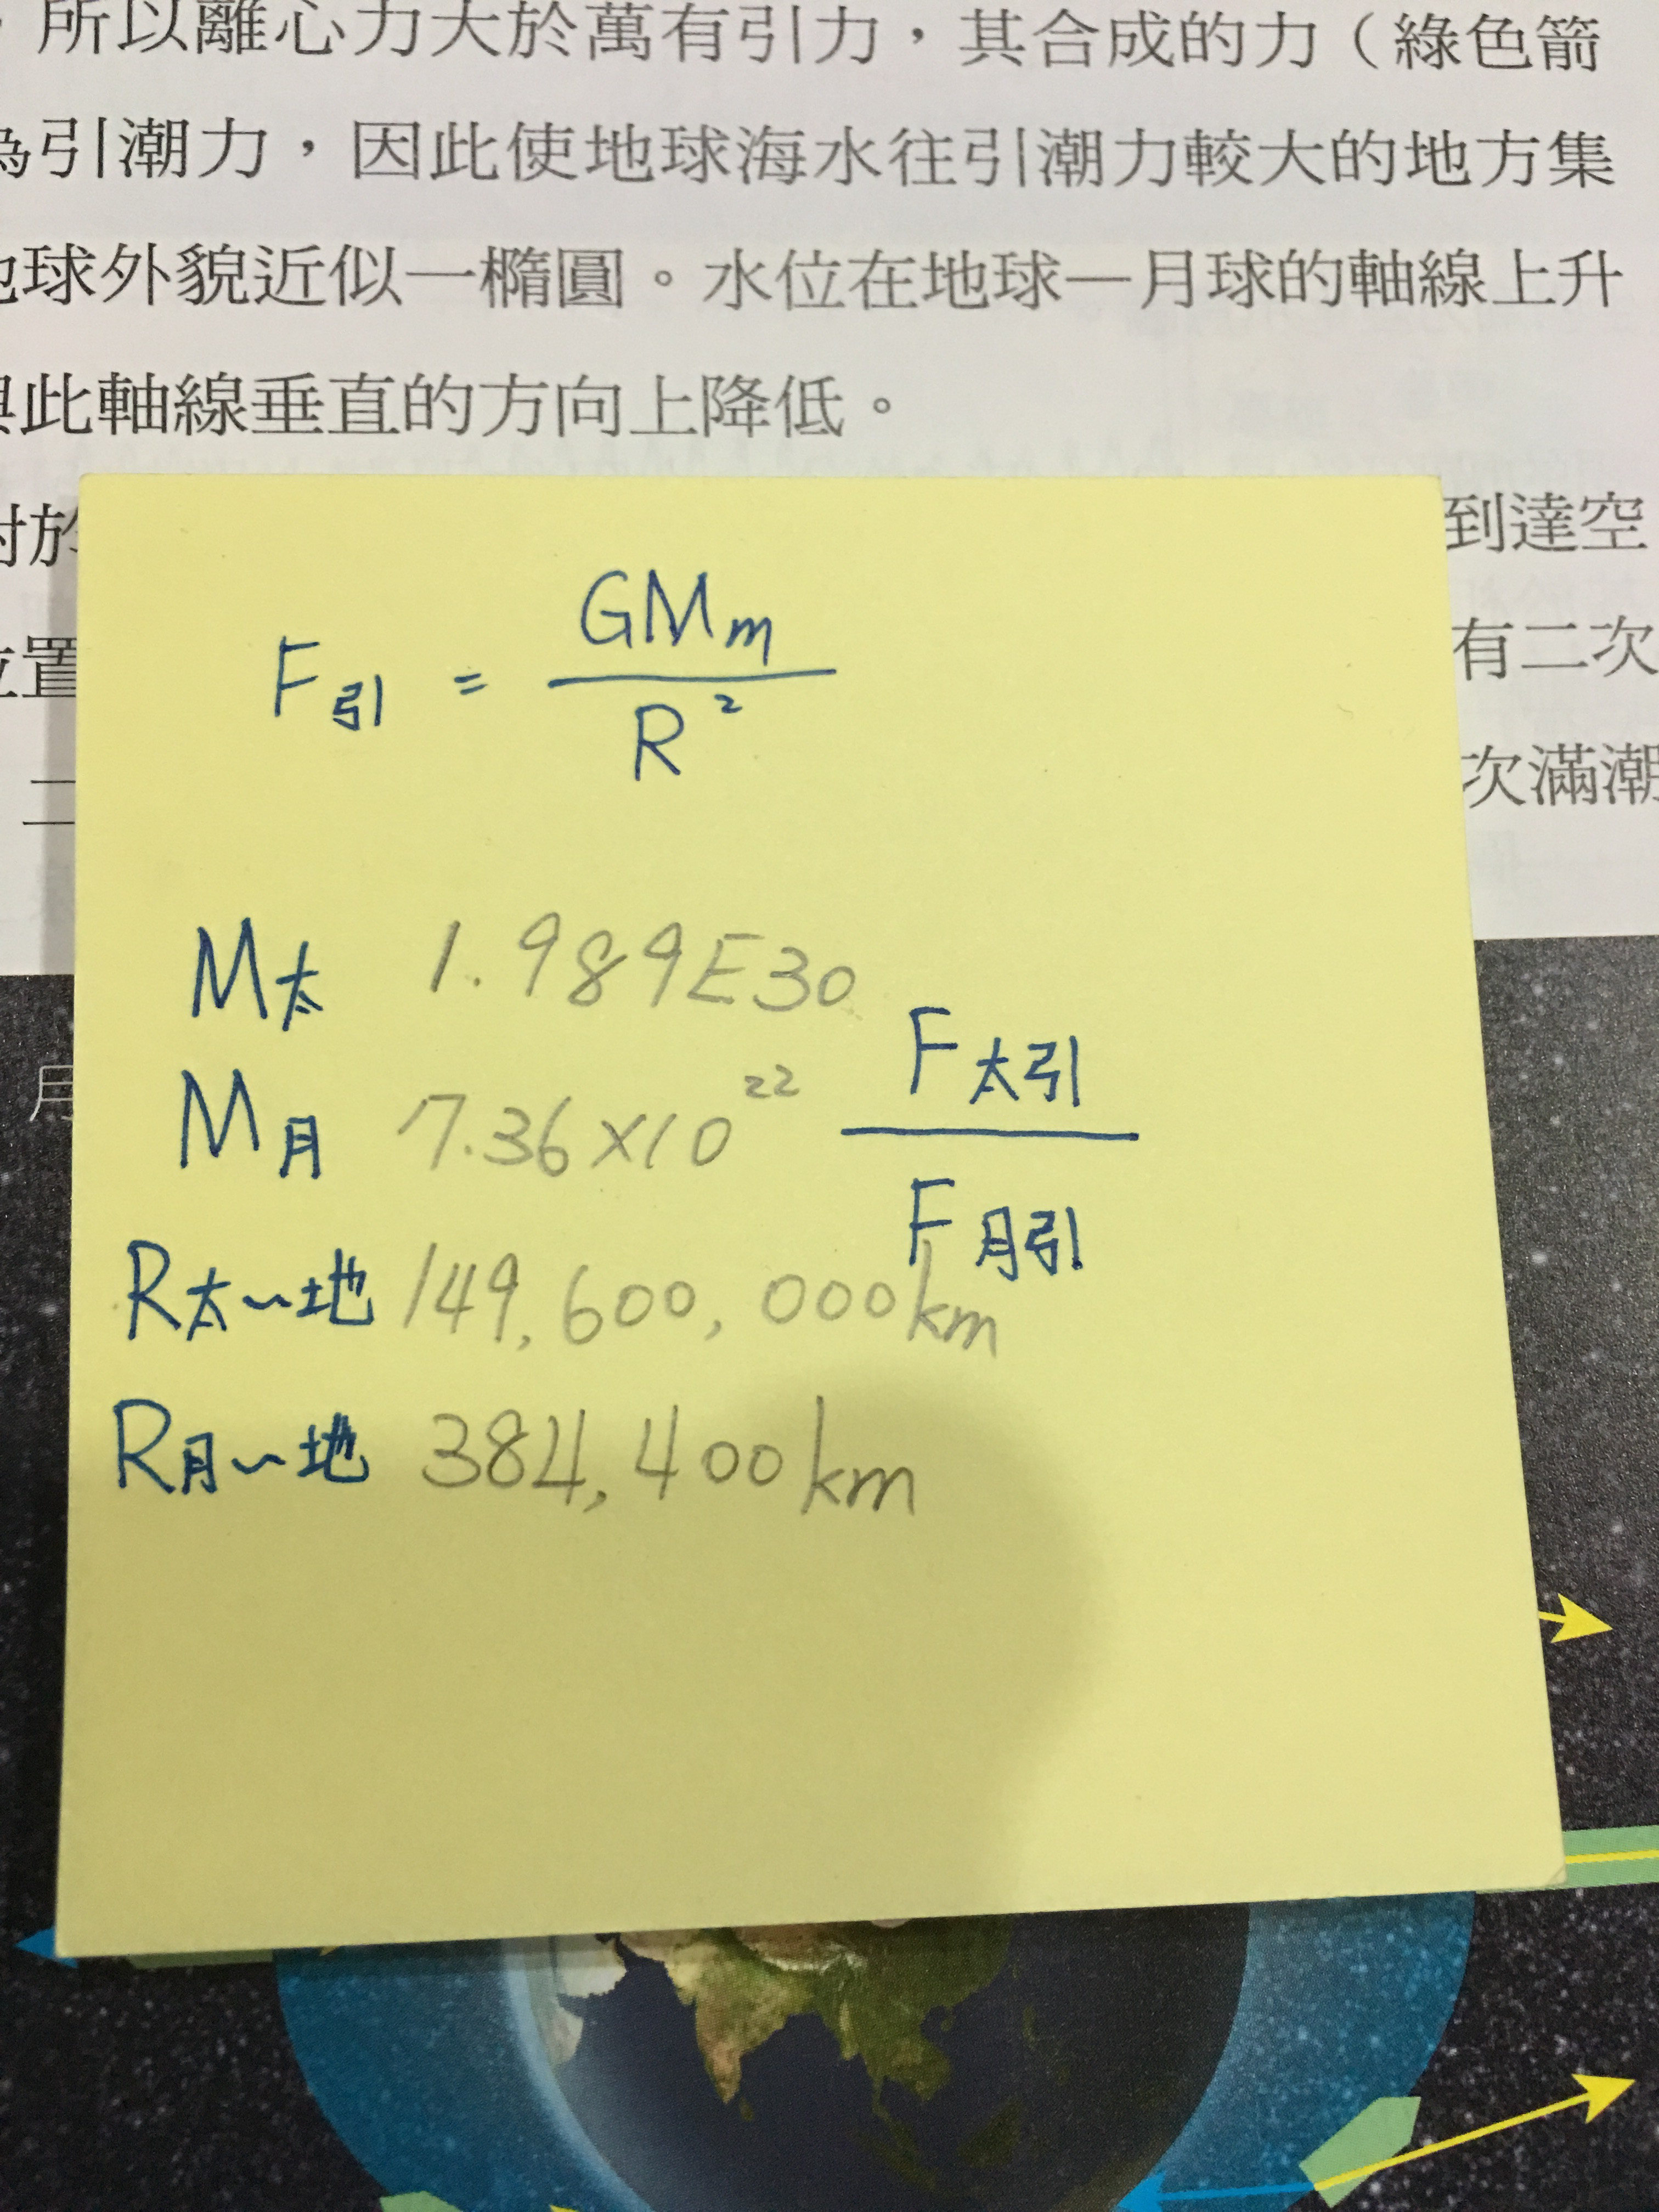 ，所以離心力大於萬有引力，其合成的力（綠色箭
為引潮力，因此使地球海水往引潮力較大的地方集
地球外貌近似一橢圓。水位在地球—月球的軸線上升
與此軸線垂直的方向上降低。
對於 到達空
位置 有二次
次滿潮
F引 = GMm / R²
M太 1.989E30
M月 7.36×10²²
F太引 / F月引
R太~地 149,600,000km
R月~地 384,400km
月